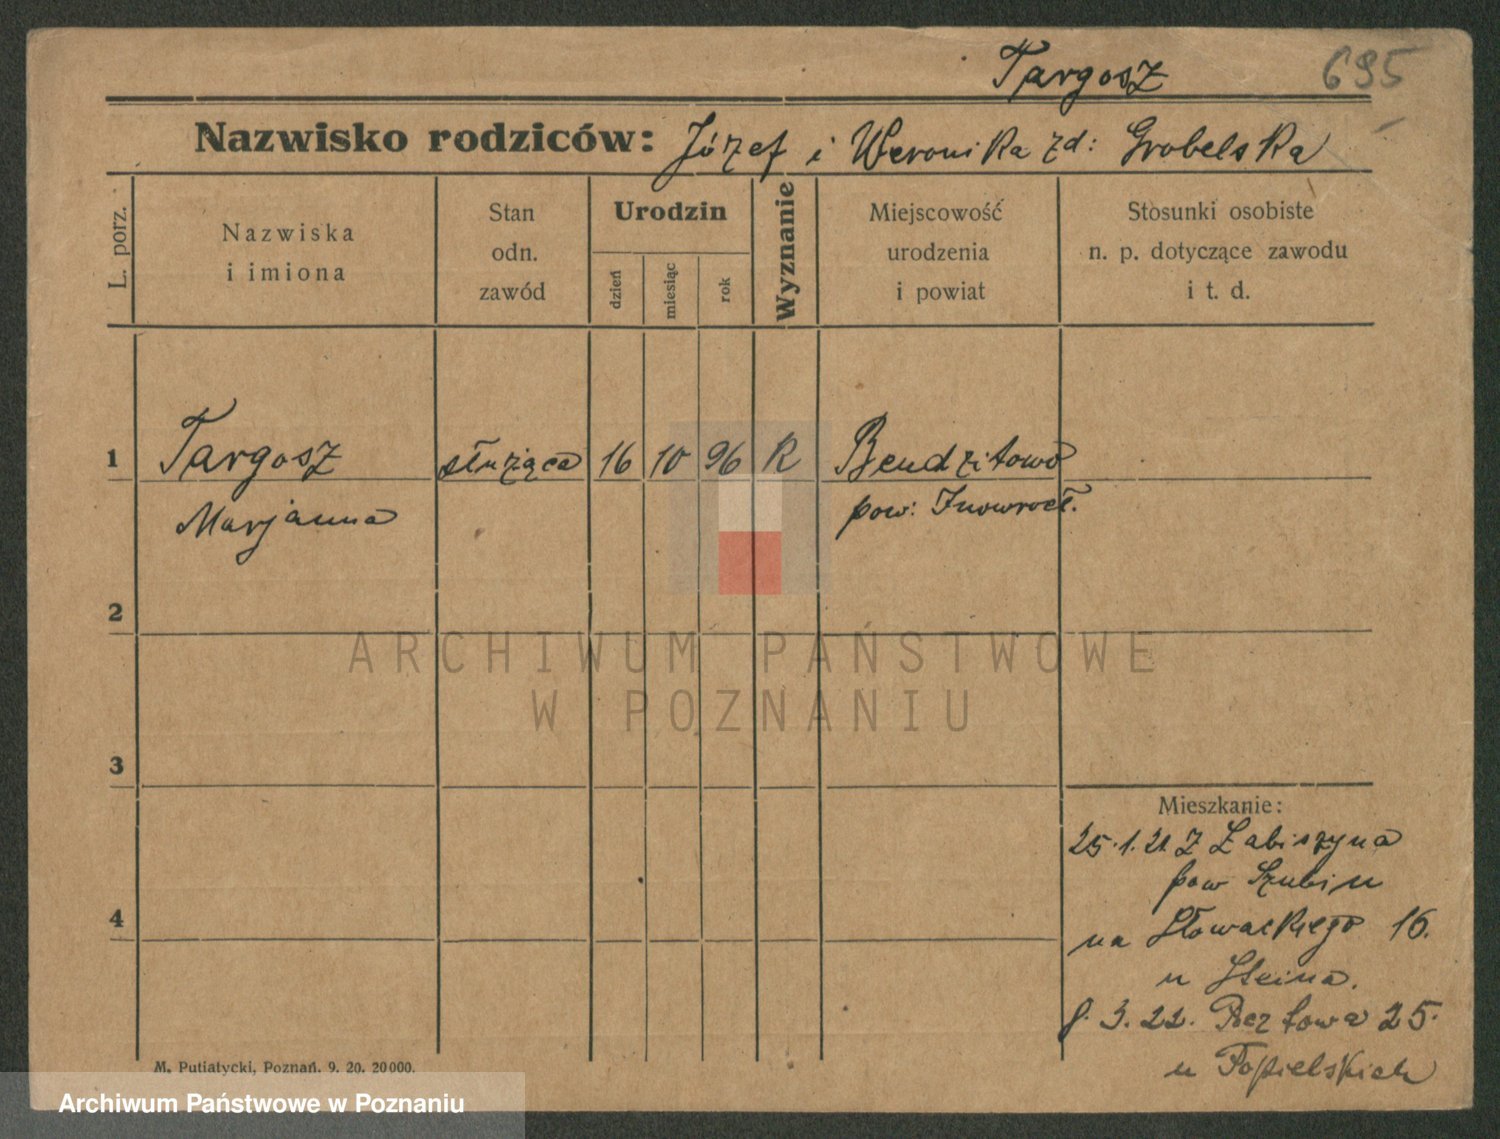 Targosz 695
Nazwisko rodziców: Józef i Weronika zd: Grobelska
L. porz.
Nazwiska
i imiona
Stan
odn.
zawód
Urodzin
dzień
miesiąc
rok
Wyznanie
Miejscowość
urodzenia
i powiat
Stosunki osobiste
n. p. dotyczące zawodu
i t. d.
1 Targosz służąca 16 10 96 R Bendzitowo
Marjanna pow: Inowrocł.
2
ARCHIWUM PAŃSTWOWE
W POZNANIU
3
Mieszkanie:
25.1.21. z Łabiszyna
pow Szubin
4
na Słowackiego 16.
u Steina.
8. 3. 22. 25.
u Popielskich
M. Putiatycki, Poznań. 9. 20. 20000.
Archiwum Państwowe w Poznaniu